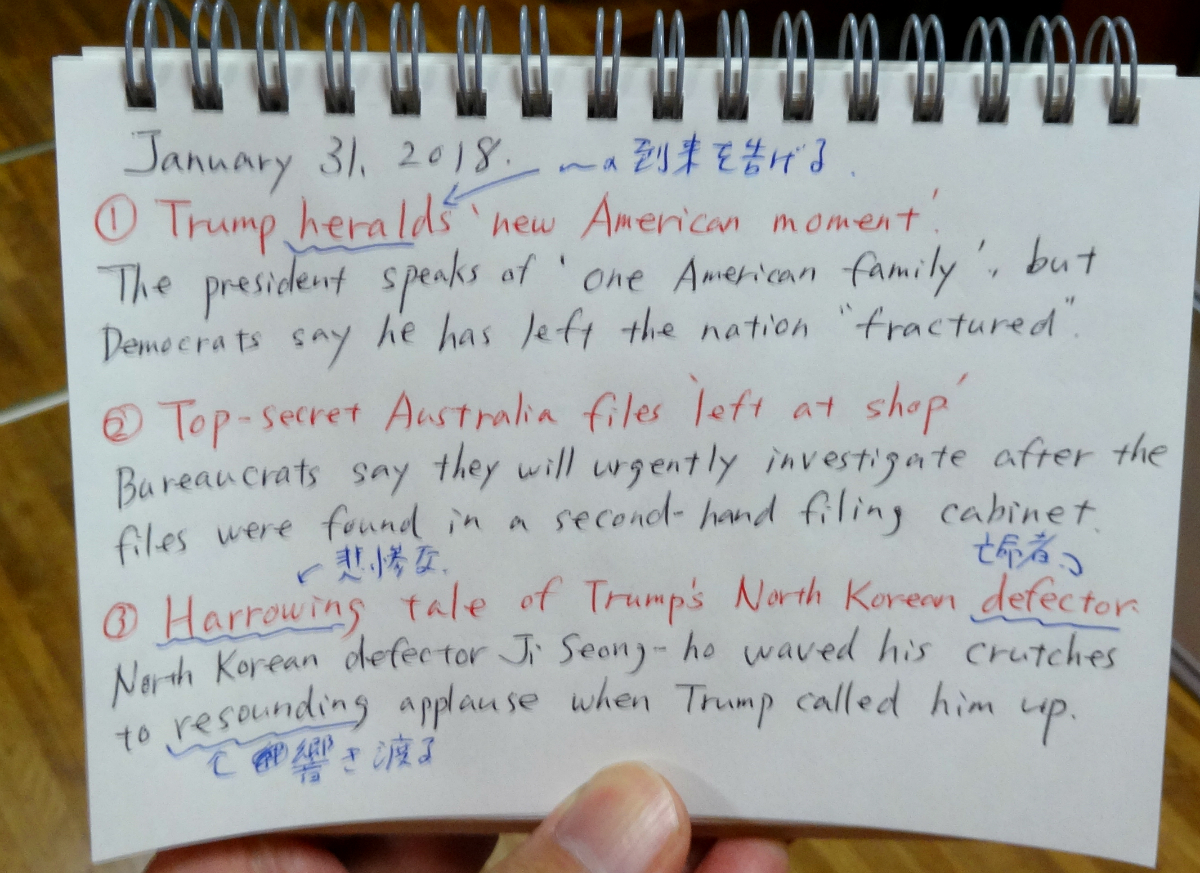 January 31, 2018. ～の到来を告げる.
① Trump heralds 'new American moment'.
The president speaks of 'one American family', but
Democrats say he has left the nation "fractured".
② Top-secret Australia files 'left at shop'
Bureaucrats say they will urgently investigate after the
files were found in a second-hand filing cabinet.
悲惨な. 亡命者
③ Harrowing tale of Trump's North Korean defector.
North Korean defector Ji Seong-ho waved his crutches
to resounding applause when Trump called him up.
響き渡る